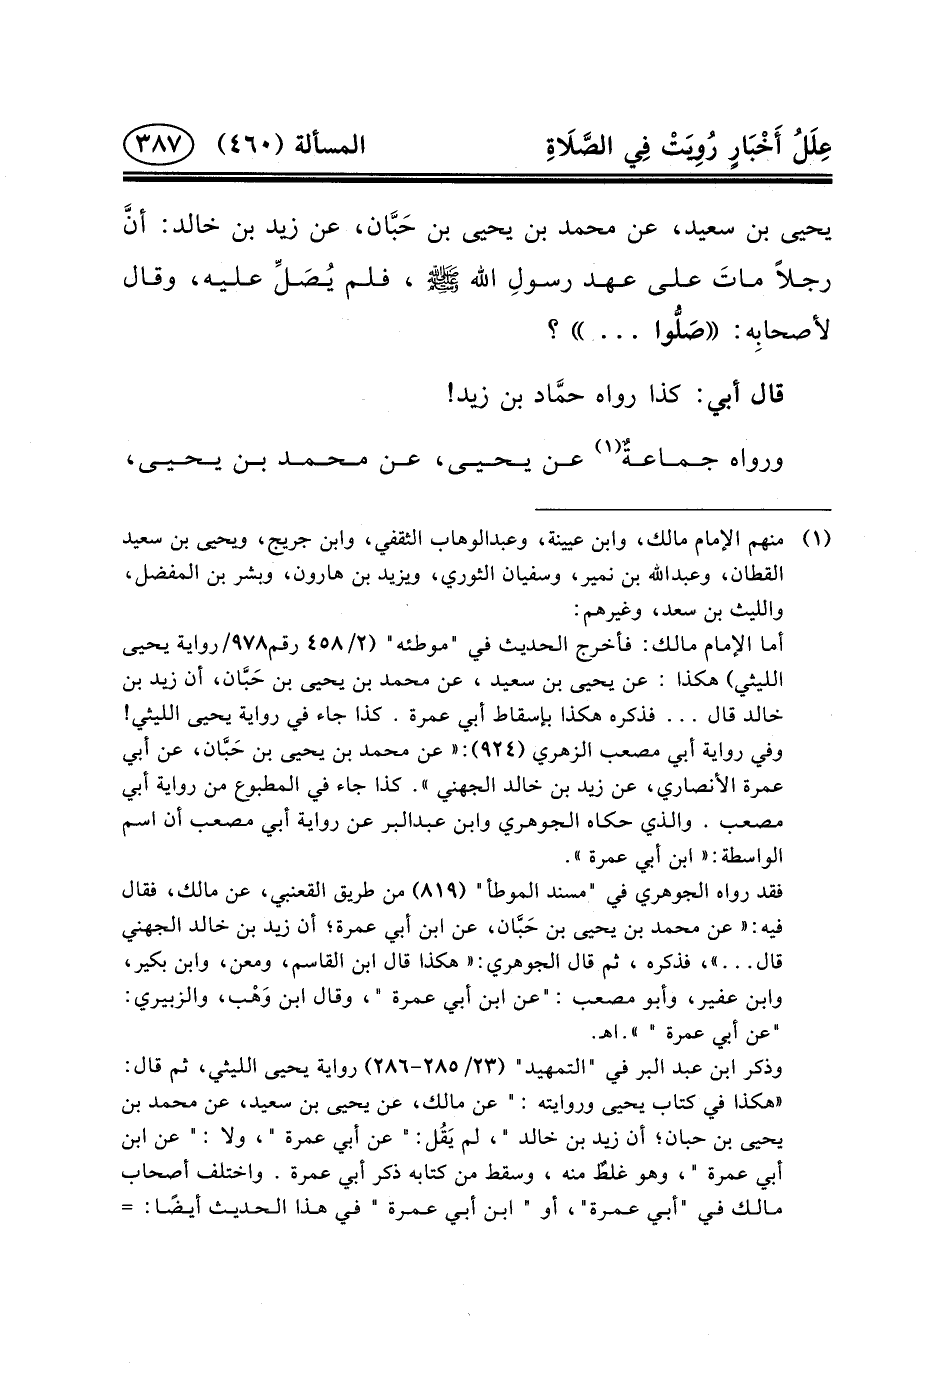 عِلَلُ أَخْبَارٍ رُوِيَتْ فِي الصَّلَاةِ المسألة (٤٦٠) ٣٨٧
يحيى بن سعيد، عن محمد بن يحيى بن حَبَّان، عن زيد بن خالد: أنَّ
رجلاً ماتَ على عهد رسولِ الله ﷺ ، فلم يُصَلِّ عليه، وقال
لأصحابِه: ((صَلُّوا ...)) ؟
قال أبي: كذا رواه حمَّاد بن زيد!
ورواه جماعةٌ(١) عن يحيى، عن محمد بن يحيى،
(١) منهم الإمام مالك، وابن عيينة، وعبدالوهاب الثقفي، وابن جريج، ويحيى بن سعيد
القطان، وعبدالله بن نمير، وسفيان الثوري، ويزيد بن هارون، وبشر بن المفضل،
والليث بن سعد، وغيرهم:
أما الإمام مالك: فأخرج الحديث في "موطئه" (٤٥٨/٢ رقم٩٧٨/ رواية يحيى
الليثي) هكذا : عن يحيى بن سعيد ، عن محمد بن يحيى بن حَبَّان، أن زيد بن
خالد قال ... فذكره هكذا بإسقاط أبي عمرة . كذا جاء في رواية يحيى الليثي!
وفي رواية أبي مصعب الزهري (٩٢٤):« عن محمد بن يحيى بن حَبَّان، عن أبي
عمرة الأنصاري، عن زيد بن خالد الجهني ». كذا جاء في المطبوع من رواية أبي
مصعب . والذي حكاه الجوهري وابن عبدالبر عن رواية أبي مصعب أن اسم
الواسطة:« ابن أبي عمرة ».
فقد رواه الجوهري في "مسند الموطأ" (٨١٩) من طريق القعنبي، عن مالك، فقال
فيه:« عن محمد بن يحيى بن حَبَّان، عن ابن أبي عمرة؛ أن زيد بن خالد الجهني
قال...»، فذكره ، ثم قال الجوهري:« هكذا قال ابن القاسم، ومعن، وابن بكير،
وابن عفير، وأبو مصعب :"عن ابن أبي عمرة "، وقال ابن وَهْب، والزبيري:
"عن أبي عمرة " ».اهـ.
وذكر ابن عبد البر في "التمهيد" (٢٣/ ٢٨٥-٢٨٦) رواية يحيى الليثي، ثم قال:
«هكذا في كتاب يحيى وروايته :" عن مالك، عن يحيى بن سعيد، عن محمد بن
يحيى بن حبان؛ أن زيد بن خالد "، لم يَقُل:" عن أبي عمرة "، ولا :" عن ابن
أبي عمرة "، وهو غلطٌ منه ، وسقط من كتابه ذكر أبي عمرة . واختلف أصحاب
مالك في "أبي عمرة"، أو " ابن أبي عمرة " في هذا الحديث أيضًا: =